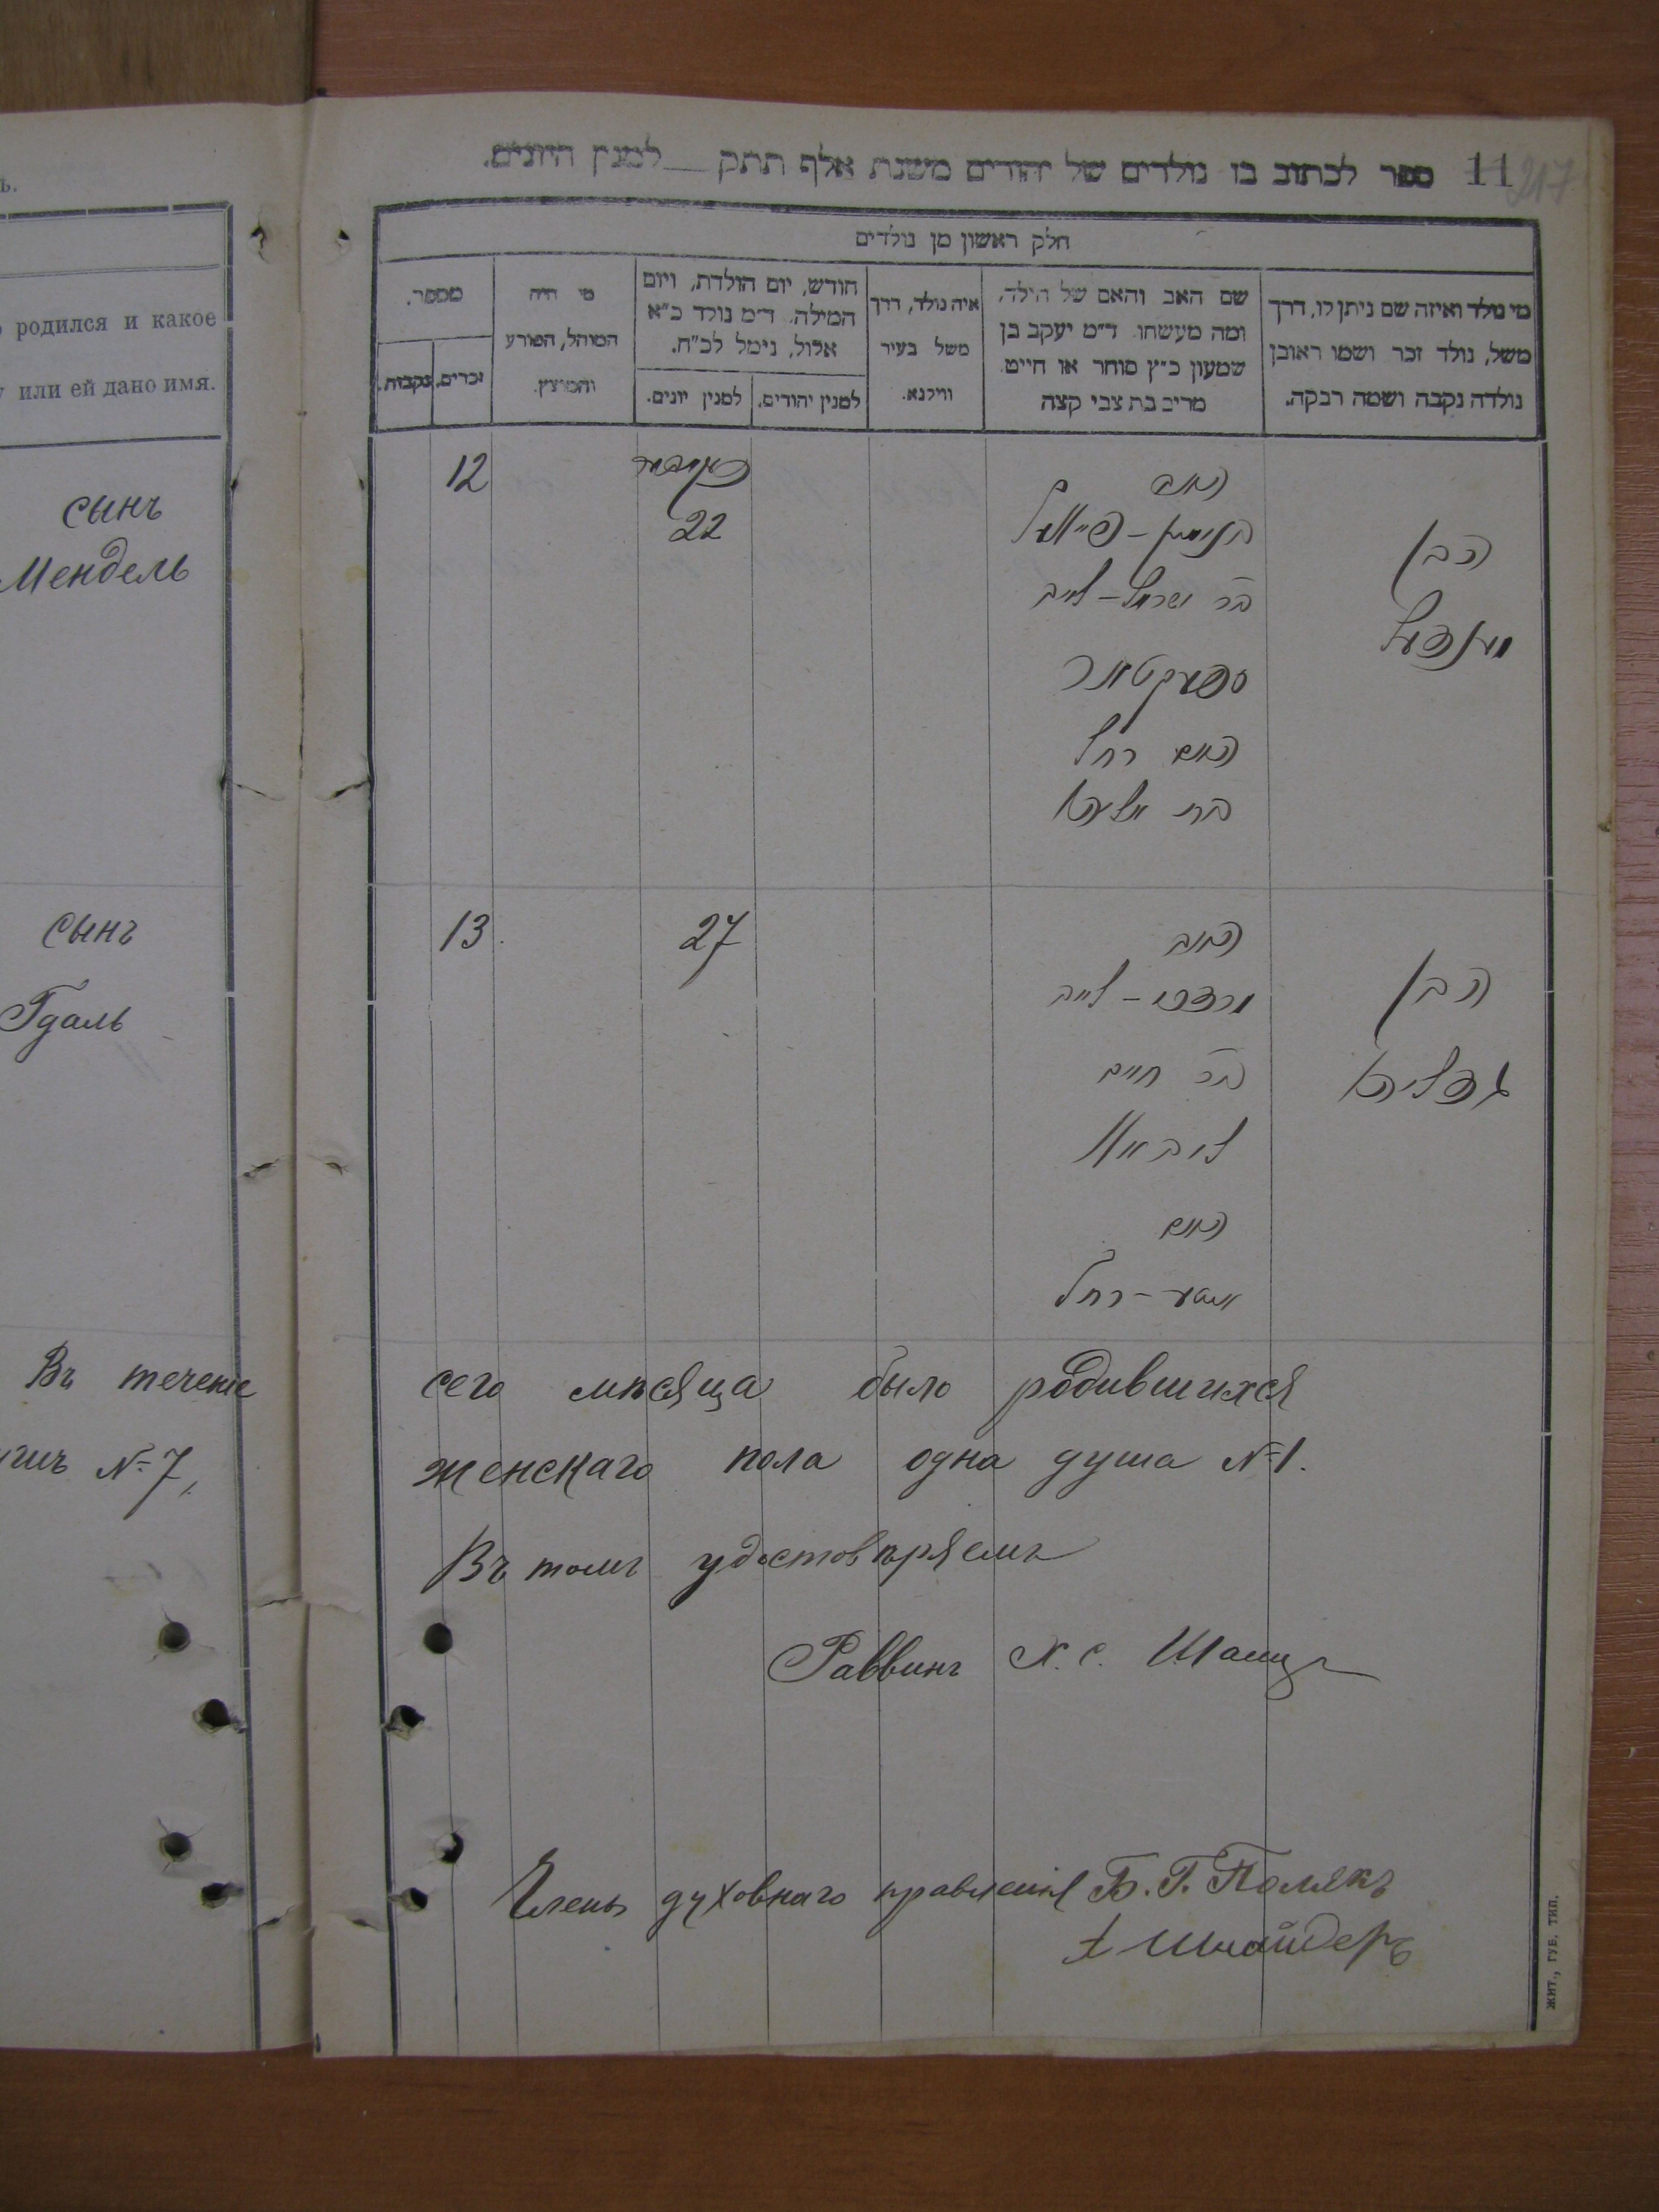 ъ.
родился и какое
или ей дано имя.
сынъ
Мендель
сынъ
Гдаль
Въ течение
№ 7,
11 217
ספר לכתוב בו נולדים של יהודים משנת אלף תתק __ למנין היונים.
חלק ראשון מן נולדים
מי נולד ואיזה שם ניתן לו, דרך
משל, נולד זכר ושמו ראובן
נולדה נקבה ושמה רבקה.
שם האב והאם של הילד,
ומה מעשהו ד״מ יעקב בן
שמעון כ״ץ סוחר או חייט
מרים בת צבי קצה
איה נולד, דרך
משל בעיר
ווילנא.
חודש, יום הולדת, ויום
המילה. ד״מ נולד כ״א
אלול, נימל לכ״ח.
למנין יהודים.
למנין יונים.
מי היה
המוהל, הפורע
והמוצץ.
מספר.
זכרים.
נקבות.
12
22
האב
בר ישראל-לייב
ספעקטאר
האם רחל
בת
הבן
מענדעל
13
27
האב
מרדכי-לייב
בר חיים
האם
רחל
הבן
גדליה
сего мѣсяца было родившихся
женскаго пола одна душа № 1.
Въ томъ удостовѣряемъ
Раввинъ Х. С.
Членъ духовнаго правленія Б. Г. Полякъ
А Шнайдеръ
ЖИТ., ГУБ. ТИП.